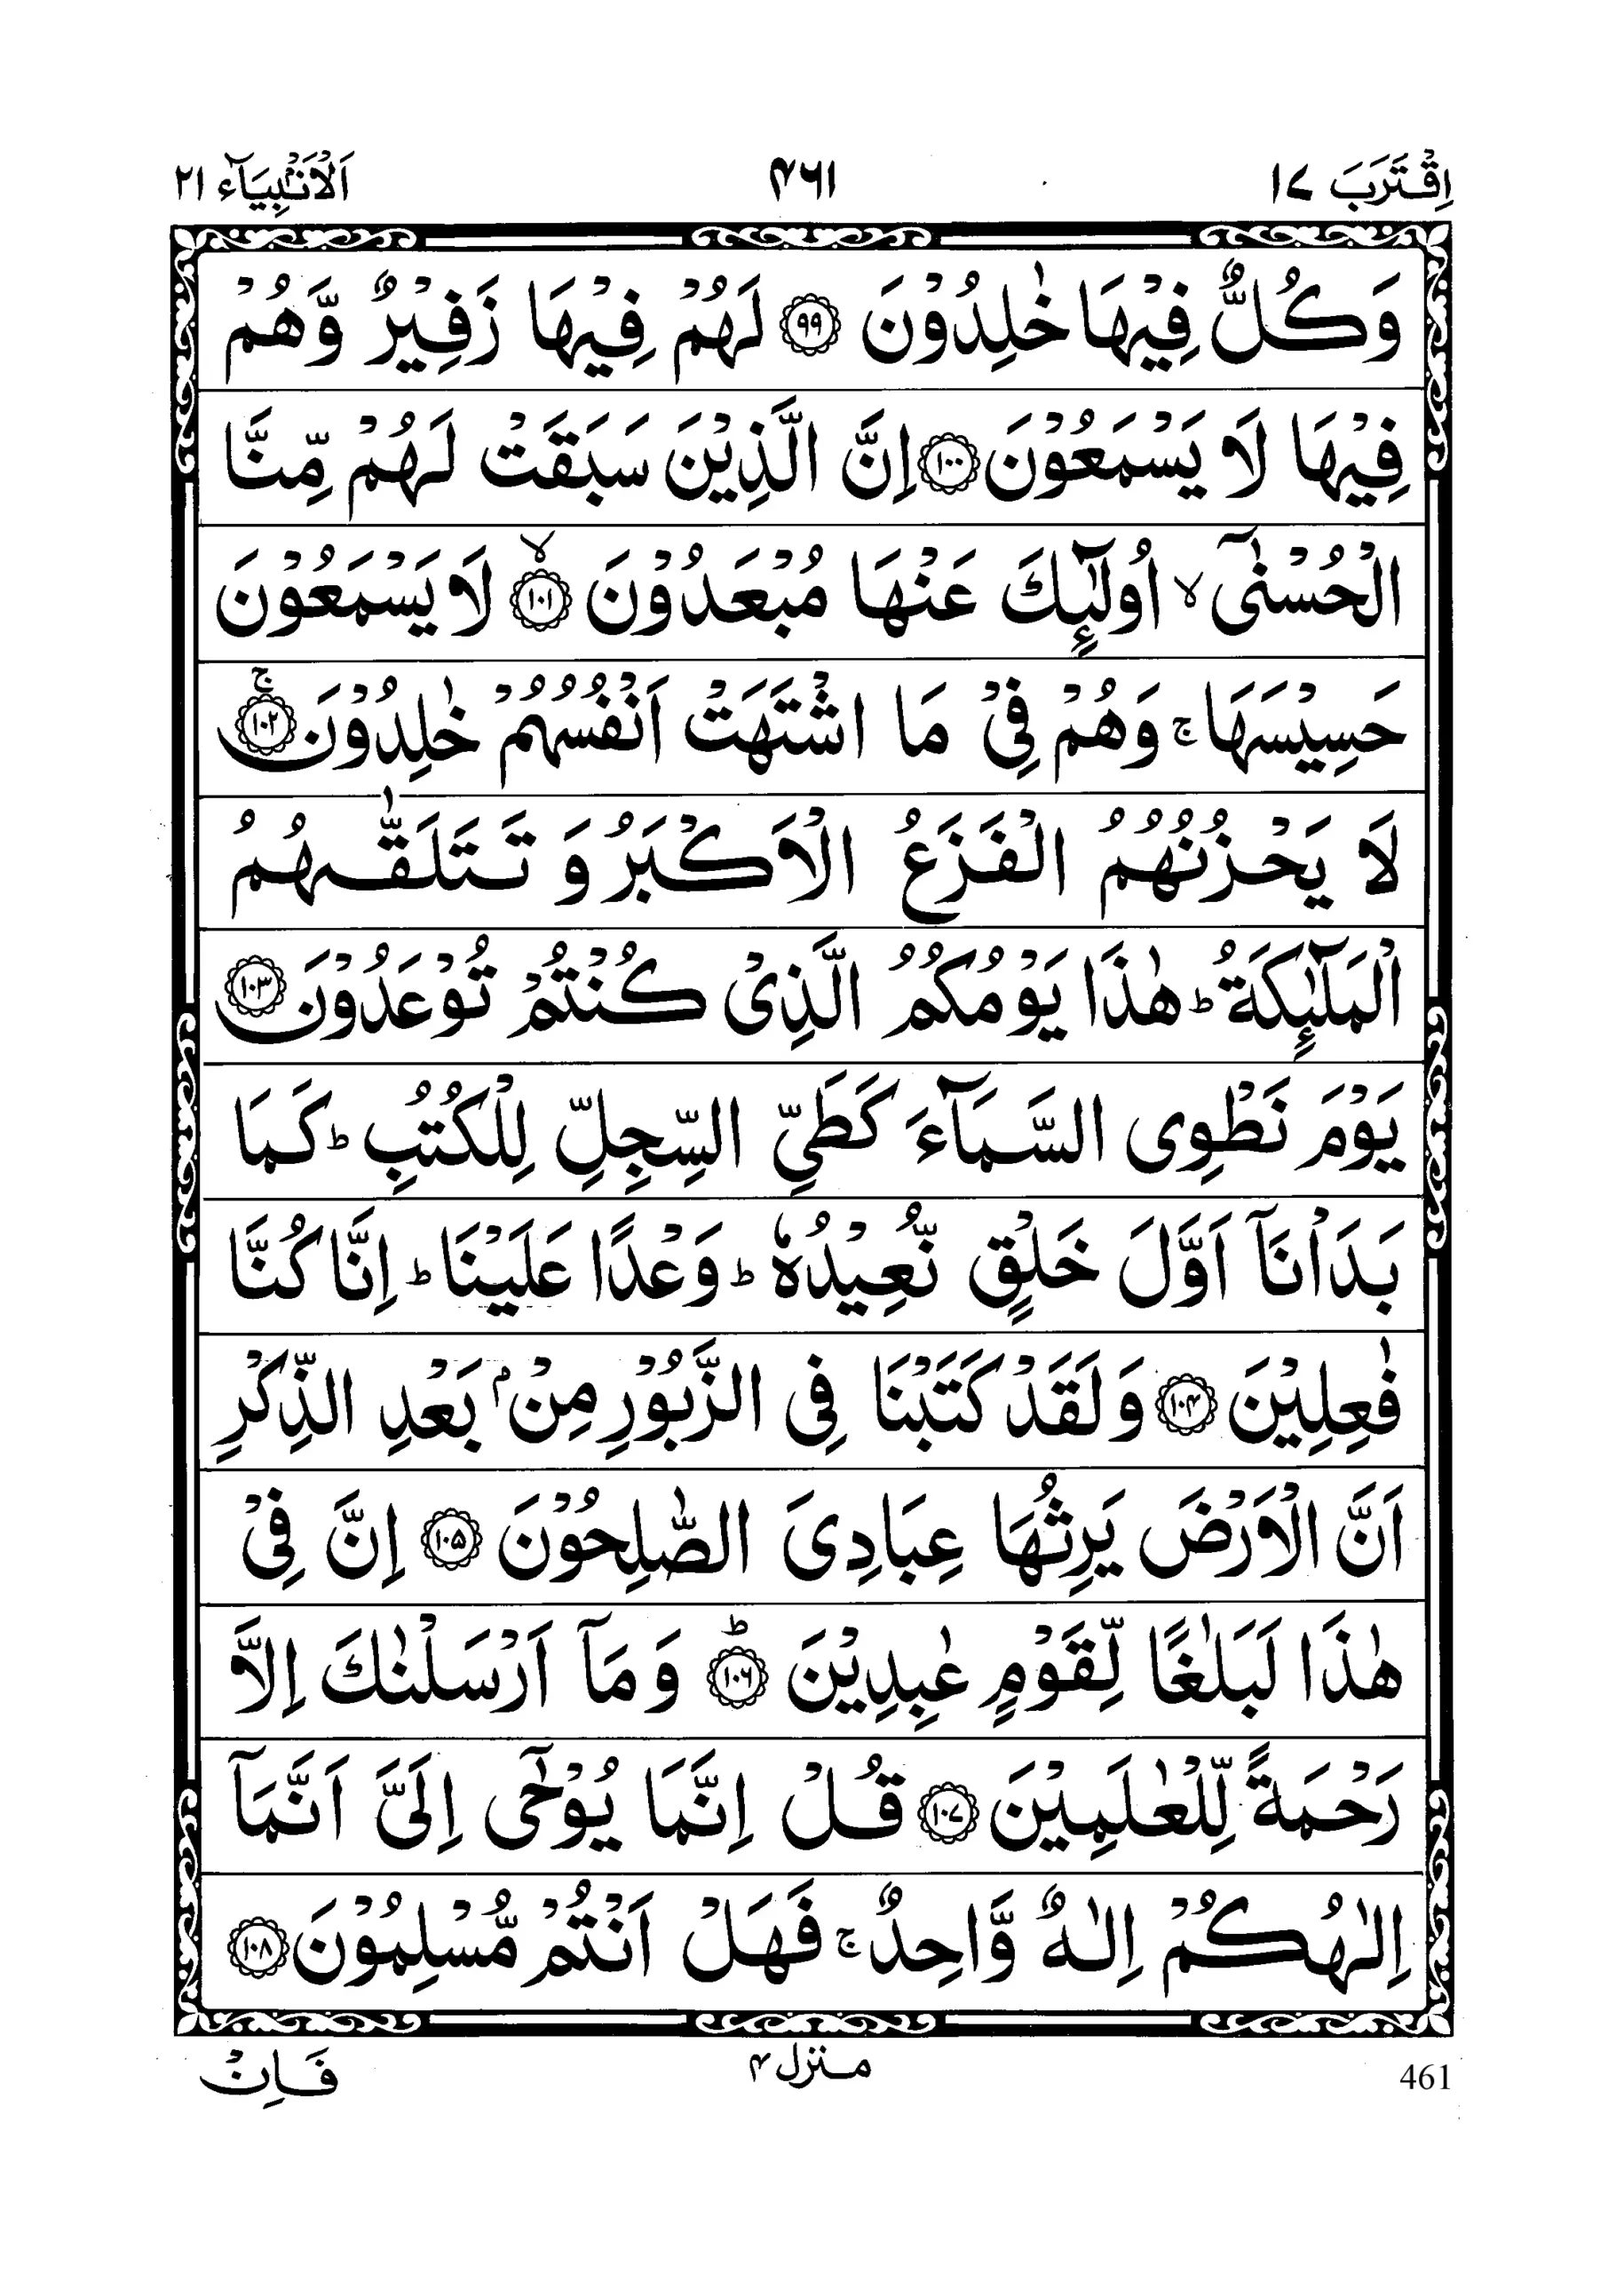 اِقْتَرَبَ ١٧ ٤٦١ اَلْاَنْۢبِيَآء ٢١
وَكُلٌّ فِيْهَا خٰلِدُوْنَ ۝٩٩ لَهُمْ فِيْهَا زَفِيْرٌ وَّهُمْ
فِيْهَا لَا يَسْمَعُوْنَ ۝١٠٠ اِنَّ الَّذِيْنَ سَبَقَتْ لَهُمْ مِّنَّا
الْحُسْنٰٓى ۙ اُولٰٓئِكَ عَنْهَا مُبْعَدُوْنَ ۙ۝١٠١ لَا يَسْمَعُوْنَ
حَسِيْسَهَا ۚ وَهُمْ فِيْ مَا اشْتَهَتْ اَنْفُسُهُمْ خٰلِدُوْنَ ۚ۝١٠٢
لَا يَحْزُنُهُمُ الْفَزَعُ الْاَكْبَرُ وَ تَتَلَقّٰىهُمُ
الْمَلٰٓئِكَةُ ؕ هٰذَا يَوْمُكُمُ الَّذِيْ كُنْتُمْ تُوْعَدُوْنَ ۝١٠٣
يَوْمَ نَطْوِى السَّمَآءَ كَطَيِّ السِّجِلِّ لِلْكُتُبِ ؕ كَمَا
بَدَاْنَآ اَوَّلَ خَلْقٍ نُّعِيْدُهٗ ؕ وَعْدًا عَلَيْنَا ؕ اِنَّا كُنَّا
فٰعِلِيْنَ ۝١٠٤ وَلَقَدْ كَتَبْنَا فِى الزَّبُوْرِ مِنْۢ بَعْدِ الذِّكْرِ
اَنَّ الْاَرْضَ يَرِثُهَا عِبَادِيَ الصّٰلِحُوْنَ ۝١٠٥ اِنَّ فِيْ
هٰذَا لَبَلٰغًا لِّقَوْمٍ عٰبِدِيْنَ ؕ۝١٠٦ وَمَآ اَرْسَلْنٰكَ اِلَّا
رَحْمَةً لِّلْعٰلَمِيْنَ ۝١٠٧ قُلْ اِنَّمَا يُوْحٰٓى اِلَيَّ اَنَّمَآ
اِلٰهُكُمْ اِلٰهٌ وَّاحِدٌ ۚ فَهَلْ اَنْتُمْ مُّسْلِمُوْنَ ۝١٠٨
461 منزل ٤ فَاِنْ